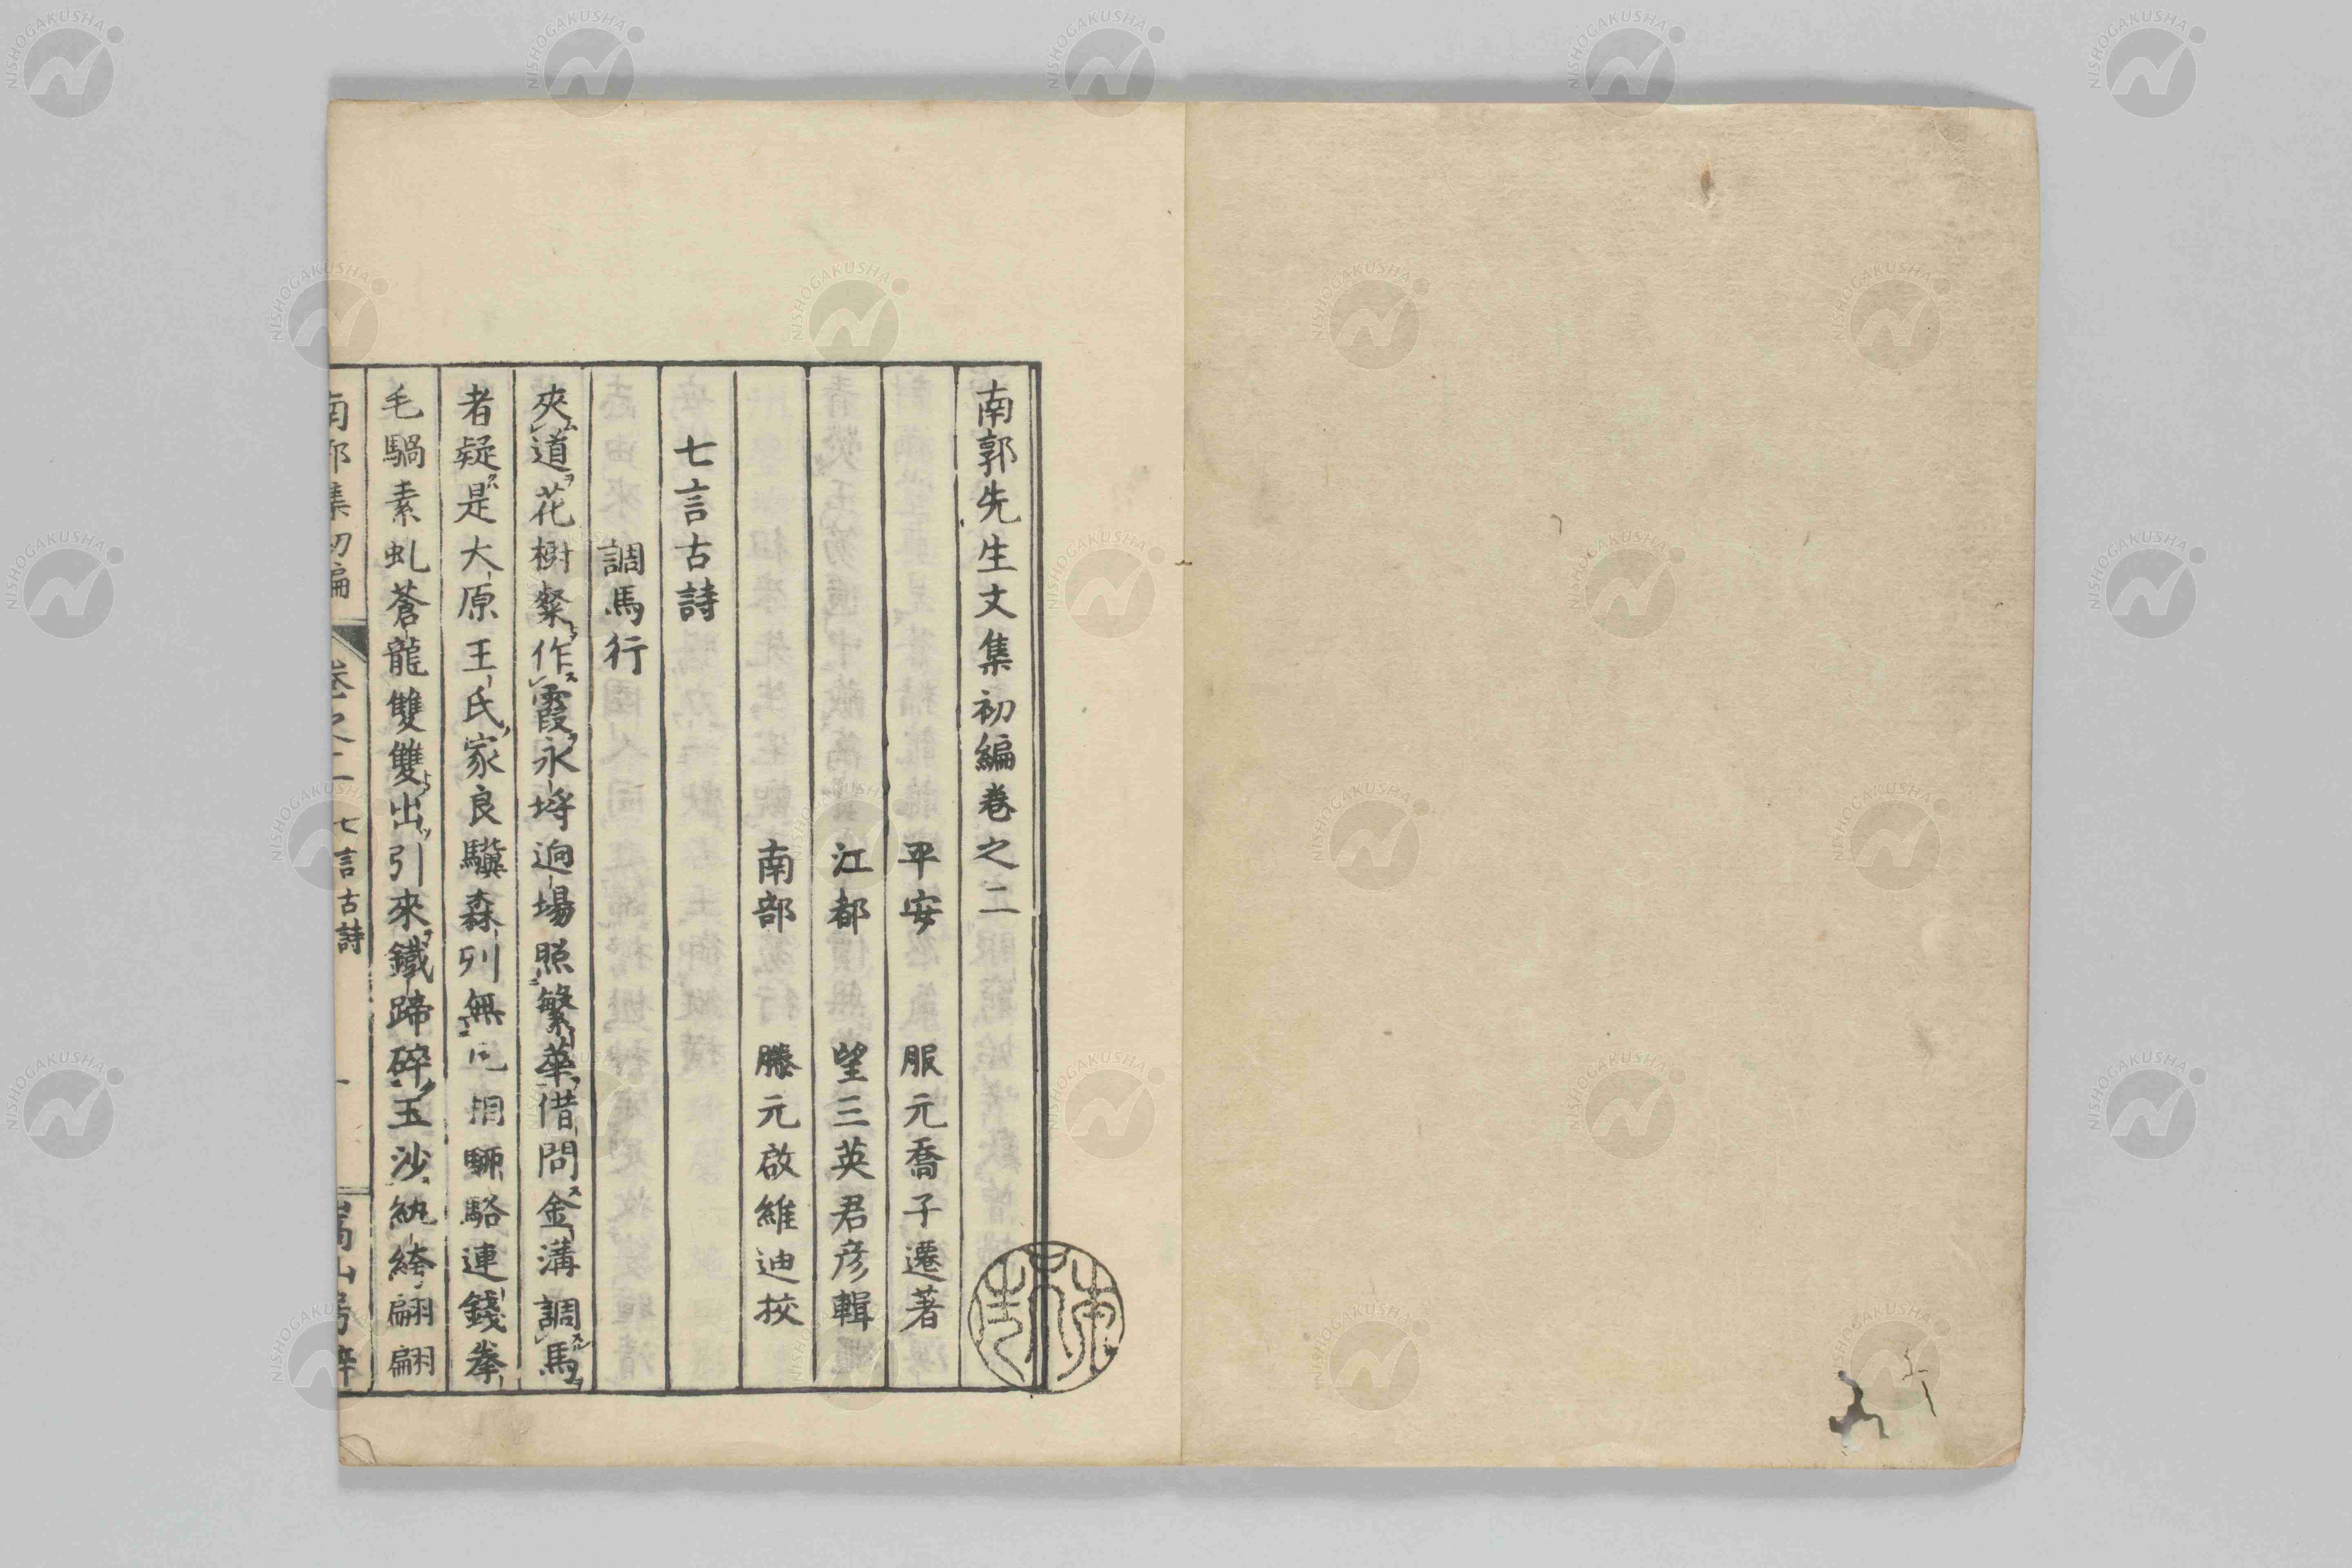 南郭先生文集初編卷之二
平安 服元喬子遷著
江都 望三英君彦輯
南部 滕元啟維迪挍
七言古詩
調馬行
夾道花樹粲作霞永埒逈場照繁華借問金溝調馬
者疑是大原王氏家良驥森列無 騮駱連錢拳
毛騧素虬蒼龍雙雙出引來鐵蹄碎玉沙紈絝翩翩
南郭集初編 卷之二 七言古詩 一
NISHOGAKUSHA